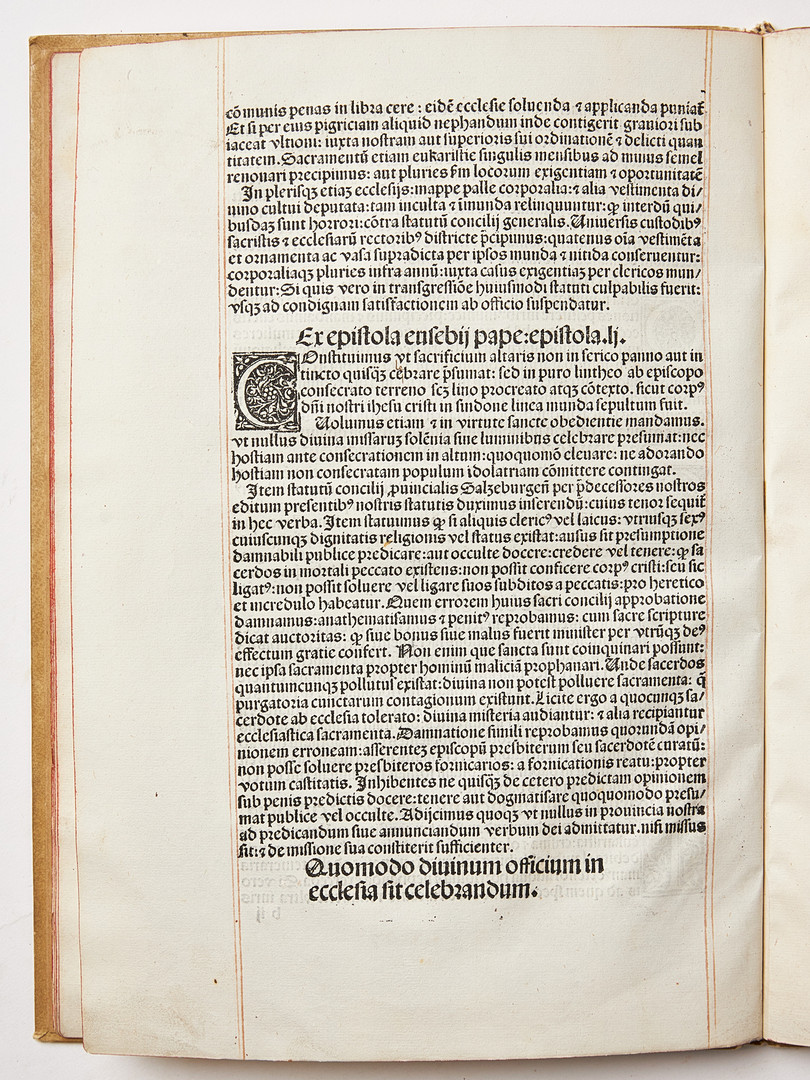 cōmunis penas in libra cere : eidē ecclesie soluenda ⁊ applicanda puniat᷑
Et si per eius pigriciam aliquid nephandum inde contigerit grauiori sub
iaceat vltioni: iuxta nostram aut superioris sui ordinationē ⁊ delicti quan
titatem. Sacramentū etiam eukaristie singulis mensibus ad minus semel
renouari precipimus: aut pluries s̄m locorum exigentiam ⁊ oportunitatē
In plerisqꝫ etiaꝫ ecclesijs: mappe palle corporalia: ⁊ alia vestimenta di/
uino cultui deputata: tam inculta ⁊ īmunda relinquuntur: ꝙ interdū qui/
busdaꝫ sunt horrori: cōtra statutū concilij generalis. Uniuersis custodibꝰ
sacristis ⁊ ecclesiarū rectoribꝰ districte p̄cipimus: quatenus oīa vestimēta
et ornamenta ac vasa supradicta per ipsos munda ⁊ nitida conseruentur:
corporaliaqꝫ pluries infra annū: iuxta casus exigentiaꝫ per clericos mun/
dentur: Si quis vero in transgressiōe huiusmodi statuti culpabilis fuerit:
vsqꝫ ad condignam satisfactionem ab officio suspendatur.
Ex epistola eusebij pape: epistola. lj.
COnstituimus vt sacrificium altaris non in serico panno aut in
tincto quisqꝫ celebrare p̄sumat: sed in puro lintheo ab episcopo
consecrato terreno scꝫ lino procreato atqꝫ cōtexto. sicut corpꝰ
dn̄i nostri ihesu cristi in sindone linea munda sepultum fuit.
Uolumus etiam ⁊ in virtute sancte obedientie mandamus.
vt nullus diuina missaruꝫ solēnia sine luminibus celebrare presumat: nec
hostiam ante consecrationem in altum: quoquomō eleuare: ne adorando
hostiam non consecratam populum idolatriam cōmittere contingat.
Item statutū concilij ꝓuincialis Salzeburgen̄ per p̄decessores nostros
editum presentibꝰ nostris statutis duximus inserendū: cuius tenor sequit᷑
in hec verba. Item statuimus ꝙ si aliquis clericꝰ vel laicus: vtriusqꝫ sexꝰ
cuiuscunqꝫ dignitatis religionis vel status existat: ausus sit presumptione
damnabili publice predicare: aut occulte docere: credere vel tenere: ꝙ sa
cerdos in mortali peccato existens: non possit conficere corpꝰ cristi: seu sic
ligatꝰ: non possit soluere vel ligare suos subditos a peccatis: pro heretico
et incredulo habeatur. Quem errorem huius sacri concilij approbatione
damnamus: anathematisamus ⁊ penitꝰ reprobamus: cum sacre scripture
dicat auctoritas: ꝙ siue bonus siue malus fuerit minister per vtrūqꝫ deꝰ
effectum gratie confert. Non enim que sancta sunt coinquinari possunt:
nec ipsa sacramenta propter hominū maliciā prophanari. Unde sacerdos
quantumcunqꝫ pollutus existat: diuina non potest polluere sacramenta: q̄
purgatoria cunctarum contagionum existunt. Licite ergo a quocunqꝫ sa/
cerdote ab ecclesia tolerato: diuina misteria audiantur: ⁊ alia recipiantur
ecclesiastica sacramenta. Damnatione simili reprobamus quorundā opi/
nionem erroneam: asserenteꝫ episcopū presbiterum seu sacerdotē curatū:
non posse soluere presbiteros fornicarios: a fornicationis reatu: propter
votum castitatis. Inhibentes ne quisqꝫ de cetero predictam opinionem
sub penis predictis docere: tenere aut dogmatisare quoquomodo presu/
mat publice vel occulte. Adijcimus quoqꝫ vt nullus in prouincia nostra
ad predicandum siue annunciandum verbum dei admittatur. nisi missus
sit: ⁊ de missione sua constiterit sufficienter.
Quomodo diuinum officium in
ecclesia sit celebrandum.